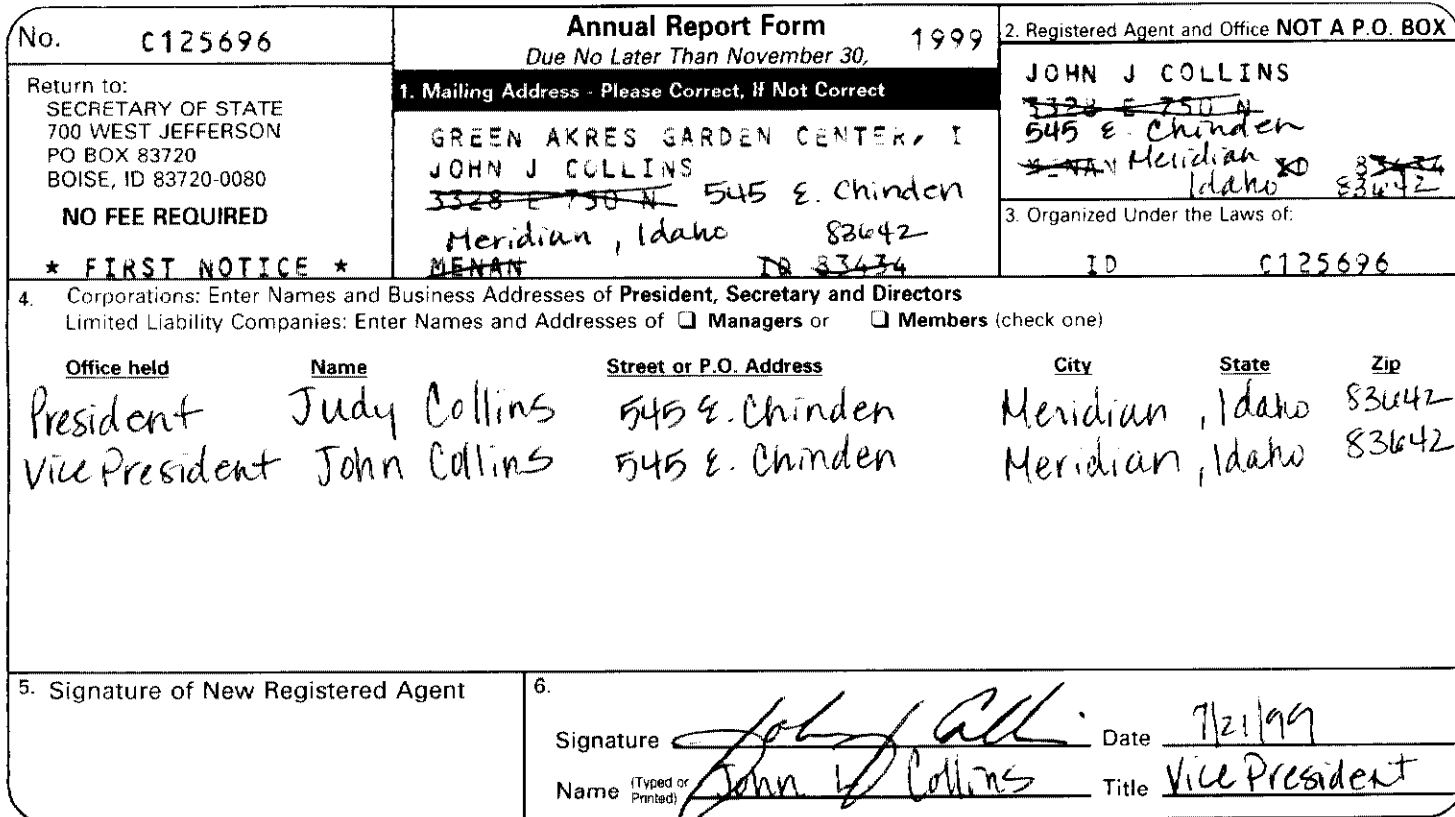 No. C125696
Return to:
SECRETARY OF STATE
700 WEST JEFFERSON
PO BOX 83720
BOISE, ID 83720-0080
NO FEE REQUIRED
* FIRST NOTICE *
Annual Report Form 1999
Due No Later Than November 30,
1. Mailing Address - Please Correct, If Not Correct
GREEN AKRES GARDEN CENTER, I
JOHN J COLLINS
3328 E 750 N 545 E. Chinden
Meridian, Idaho 83642
MENAN ID 83434
2. Registered Agent and Office NOT A P.O. BOX
JOHN J COLLINS
3328 E 750 N
545 E. Chinden
MENAN Meridian ID 83434
Idaho 83642
3. Organized Under the Laws of:
ID C125696
4. Corporations: Enter Names and Business Addresses of President, Secretary and Directors
Limited Liability Companies: Enter Names and Addresses of ❑ Managers or ❑ Members (check one)
Office held Name Street or P.O. Address City State Zip
President Judy Collins 545 E. Chinden Meridian, Idaho 83642
Vice President John Collins 545 E. Chinden Meridian, Idaho 83642
5. Signature of New Registered Agent
6.
Signature John J Colli Date 7/21/99
Name (Typed or Printed) John Collins Title Vice President